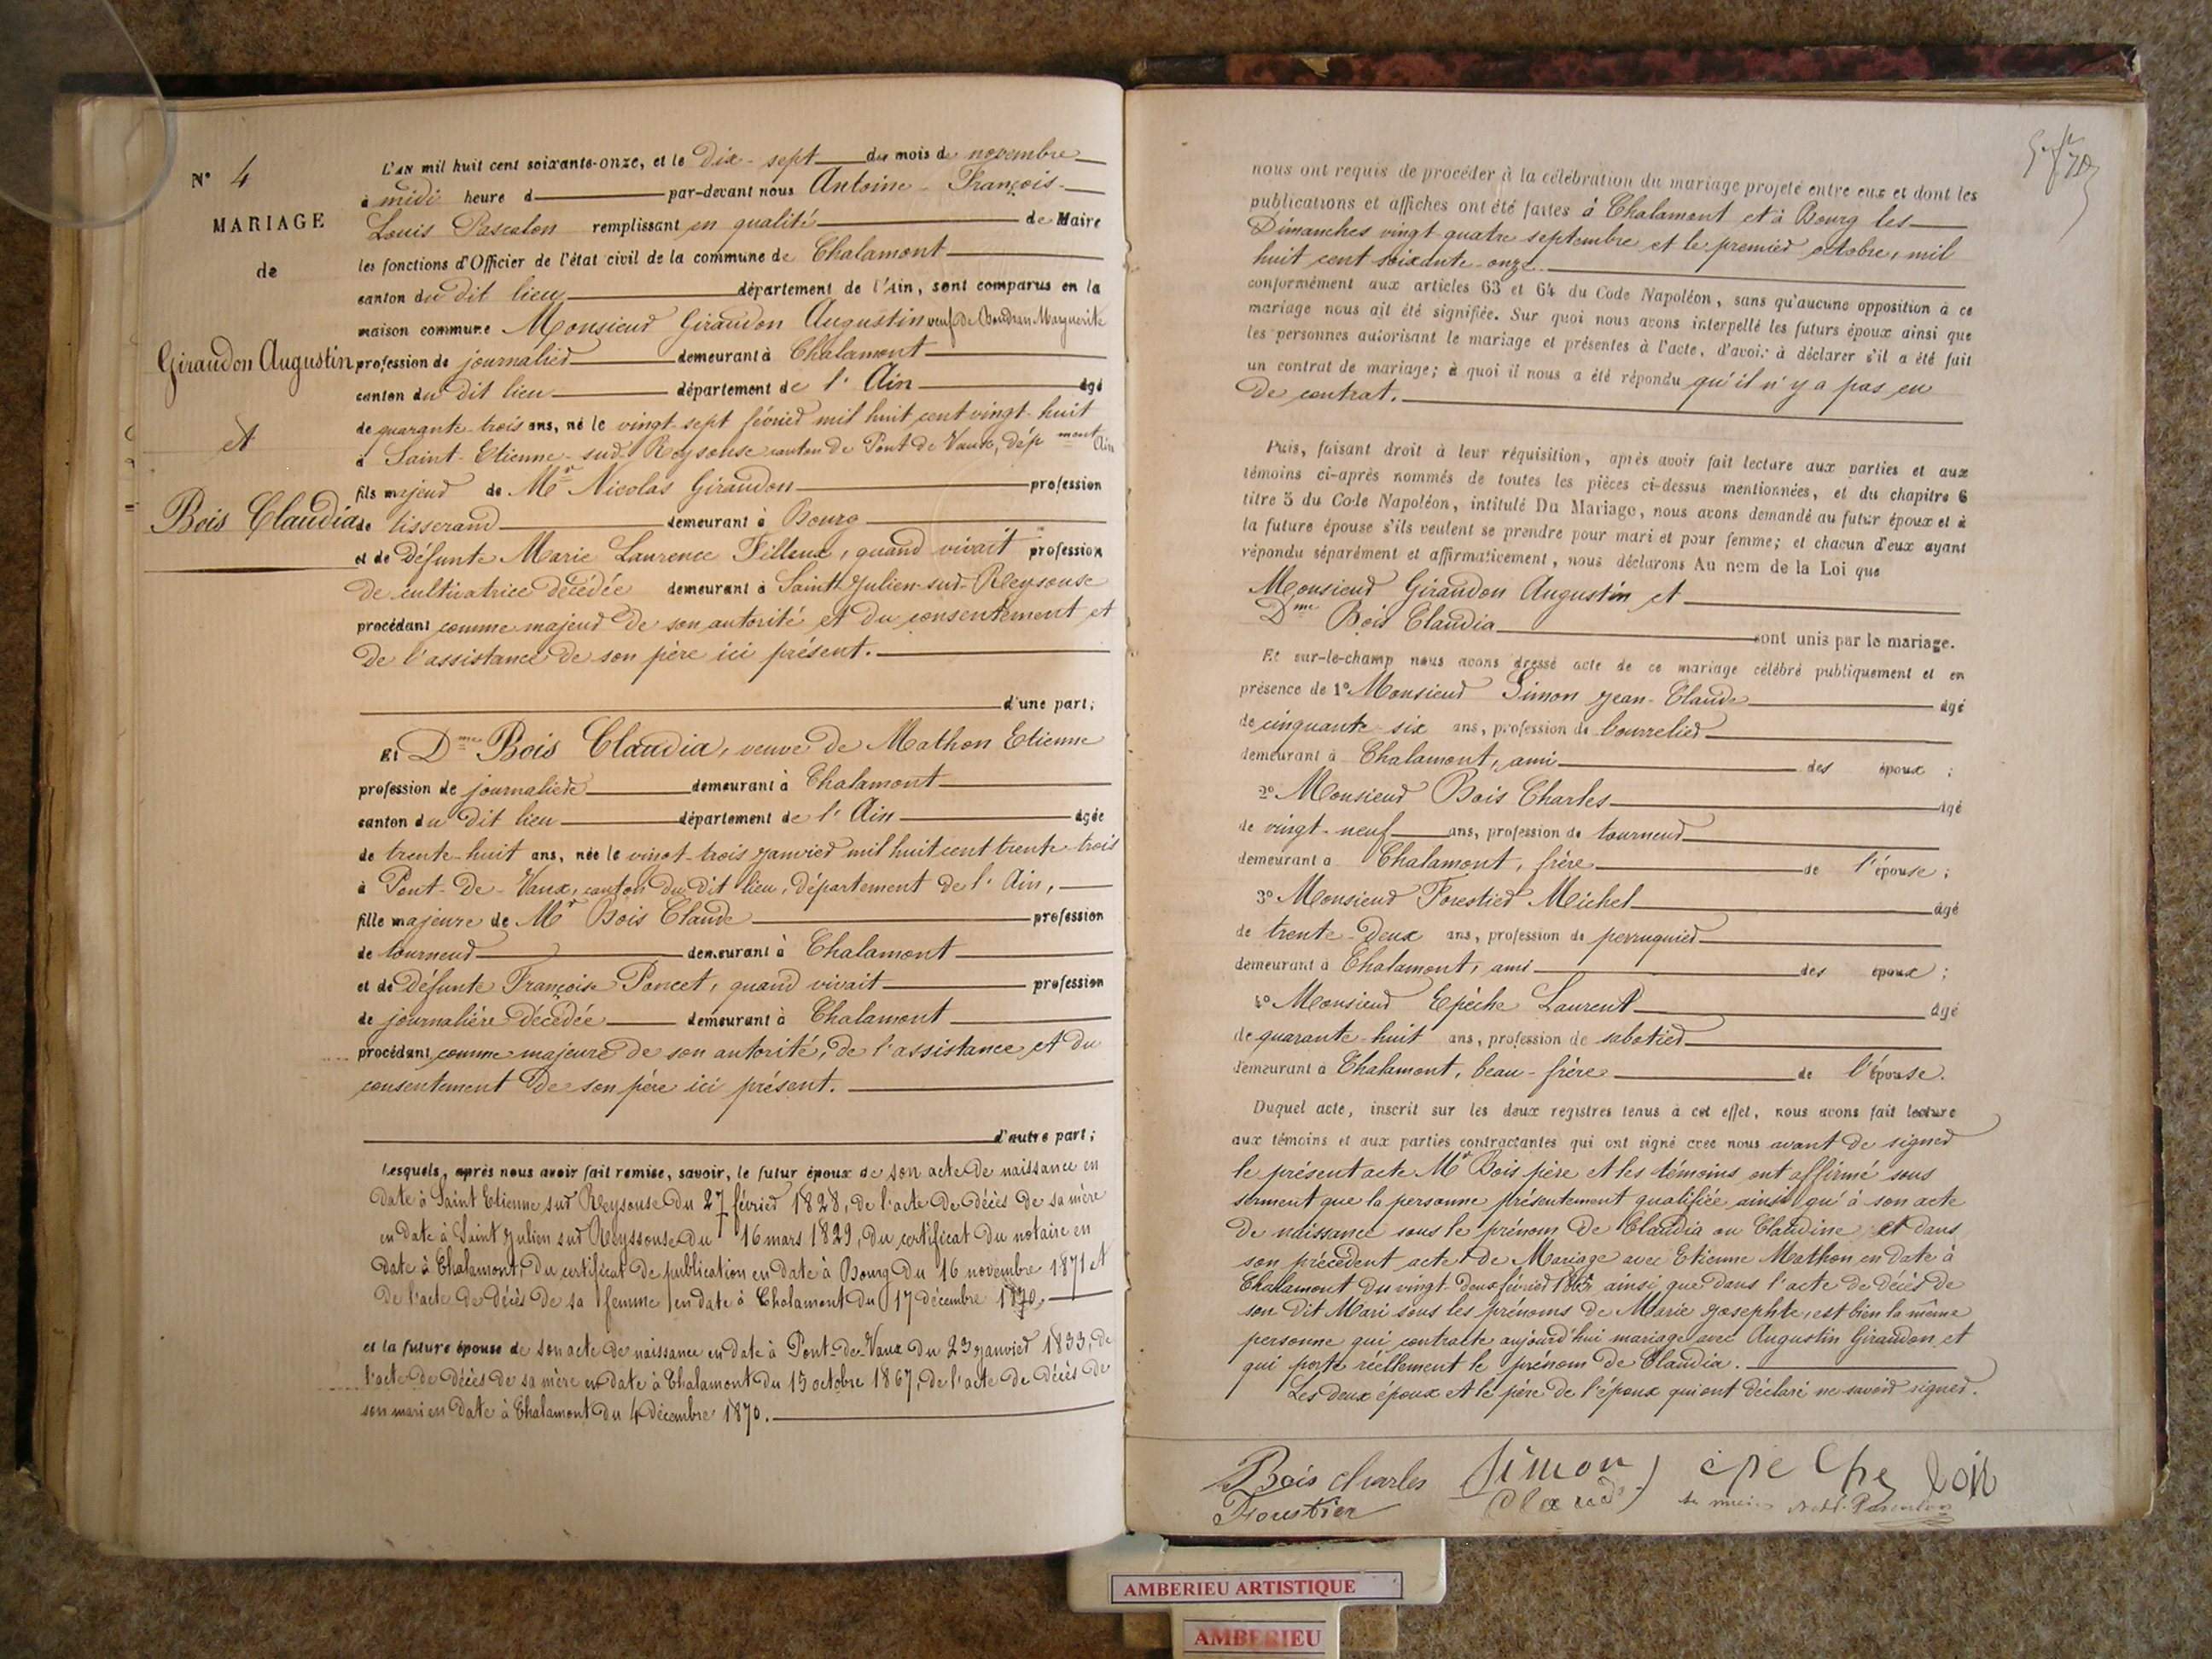 N° 4
MARIAGE
de
Giraudon Augustin
et
Bois Claudia
L'an mil huit cent soixante-onze, et le dix-sept du mois de novembre
à midi heure d par-devant nous Antoine-François-
Louis Pascalon remplissant en qualité de Maire
les fonctions d'Officier de l'état civil de la commune de Chalamont
canton du dit lieu département de l'Ain, sont comparus en la
maison commune Monsieur Giraudon Augustin veuf de Marguerite
profession de journalier demeurant à Chalamont
canton du dit lieu département de l'Ain âgé
de quarante-trois ans, né le vingt-sept février mil huit cent vingt-huit
à Saint-Etienne-sur-Reysouse canton de Pont de Vaux, dép ment Ain
fils majeur de Mr Nicolas Giraudon profession
de tisserand demeurant à Bourg
et de défunte Marie Laurence Filleux, quand vivait profession
de cultivatrice décédée demeurant à Saint Julien-sur-Reysouse
procédant comme majeur de son autorité et du consentement et
de l'assistance de son père ici présent.
d'une part;
Et Dme Bois Claudia, veuve de Mathon Etienne
profession de journalière demeurant à Chalamont
canton du dit lieu département de l'Ain âgée
de trente-huit ans, née le vingt-trois janvier mil huit cent trente-trois
à Pont-De-Vaux, canton du dit lieu, département de l'Ain,
fille majeure de Mr Bois Claude profession
de tourneur demeurant à Chalamont
et de défunte Françoise Poncet, quand vivait profession
de journalière décédée demeurant à Chalamont
procédant comme majeure de son autorité, de l'assistance et du
consentement de son père ici présent.
d'autre part;
Lesquels, après nous avoir fait remise, savoir, le futur époux de son acte de naissance en
date à Saint Etienne sur Reysouse du 27 février 1828, de l'acte de décès de sa mère
en date à Saint Julien sur Reyssouse du 16 mars 1829, du certificat du notaire en
date à Chalamont, du certificat de publication en date à Bourg du 16 novembre 1871 et
de l'acte de décès de sa femme en date à Chalamont du 17 décembre 1870.
et la future épouse de son acte de naissance en date à Pont-de-Vaux du 23 janvier 1833, de
l'acte de décès de sa mère en date à Chalamont du 15 octobre 1867, de l'acte de décès de
son mari en date à Chalamont du 4 décembre 1870.
nous ont requis de procéder à la célébration du mariage projeté entre eux et dont les
publications et affiches ont été faites à Chalamont et à Bourg les
Dimanches vingt-quatre septembre et le premier octobre, mil
huit cent soixante-onze
conformément aux articles 63 et 64 du Code Napoléon, sans qu'aucune opposition à ce
mariage nous ait été signifiée. Sur quoi nous avons interpellé les futurs époux ainsi que
les personnes autorisant le mariage et présentes à l'acte, d'avoir à déclarer s'il a été fait
un contrat de mariage; à quoi il nous a été répondu qu'il n'y a pas eu
de contrat.
Puis, faisant droit à leur réquisition, après avoir fait lecture aux parties et aux
témoins ci-après nommés de toutes les pièces ci-dessus mentionnées, et du chapitre 6
titre 5 du Code Napoléon, intitulé Du Mariage, nous avons demandé au futur époux et à
la future épouse s'ils veulent se prendre pour mari et pour femme; et chacun d'eux ayant
répondu séparément et affirmativement, nous déclarons Au nom de la Loi que
Monsieur Giraudon Augustin et
Dme Bois Claudia sont unis par le mariage.
Et sur-le-champ nous avons dressé acte de ce mariage célébré publiquement et en
présence de 1° Monsieur Simon Jean-Claude âgé
de cinquante-six ans, profession de bourrelier
demeurant à Chalamont, ami des époux ;
2° Monsieur Bois Charles âgé
de vingt-neuf ans, profession de tourneur
demeurant à Chalamont, frère de l'épouse ;
3° Monsieur Forestier Michel âgé
de trente-deux ans, profession de perruquier
demeurant à Chalamont, ami des époux ;
4° Monsieur Epèche Laurent âgé
de quarante-huit ans, profession de sabotier
demeurant à Chalamont, beau-frère de l'épouse.
Duquel acte, inscrit sur les deux registres tenus à cet effet, nous avons fait lecture
aux témoins et aux parties contractantes qui ont signé avec nous avant de signer
le présent acte Mr Bois père et les témoins ont affirmé sous
serment que la personne présentement qualifiée ainsi qu'à son acte
de naissance sous le prénom de Claudia ou Claudine et dans
son précédent acte de Mariage avec Etienne Mathon en date à
Chalamont du vingt-deux février ainsi que dans l'acte de décès de
son dit Mari sous les prénoms de Marie Josephte, est bien la même
personne qui contracte aujourd'hui mariage avec Augustin Giraudon et
qui porte réellement le prénom de Claudia.
Les deux époux et le père de l'époux qui ont déclaré ne savoir signer.
Bois Charles Simon epeche bois
Forestier Claude
AMBERIEU ARTISTIQUE
AMBERIEU